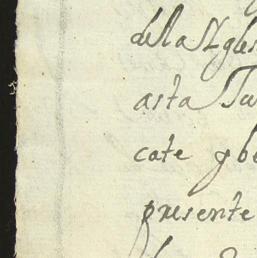 de la Ygles
asta Ju
cate y be
presente